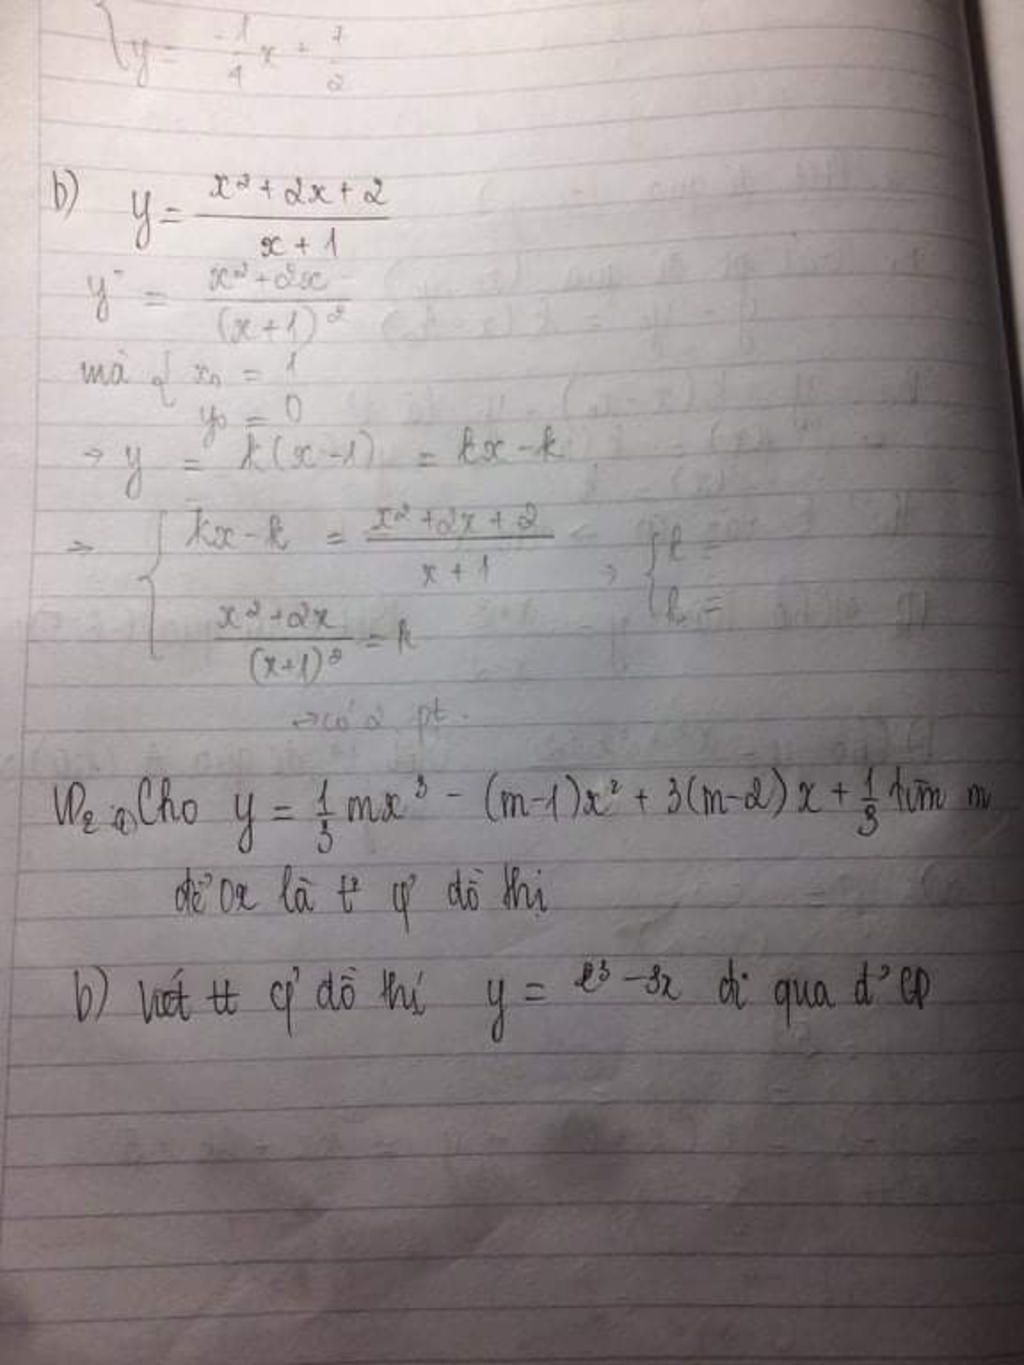 y = -1/4 x + 7/2
b) y = (x² + 2x + 2)/(x + 1)
y' = (x² + 2x)/(x+1)²
mà { x₀ = 1
y₀ = 0
→ y = k(x-1) = kx - k
→ { kx - k = (x² + 2x + 2)/(x + 1) → { k =
(x² + 2x)/(x+1)² = k k =
→ có 2 pt.
VD₂ a) Cho y = 1/3 mx³ - (m-1)x² + 3(m-2)x + 1/3 tìm m
để Ox là t² đồ thị
b) viết tt đồ thị y = x³ - 3x đi qua đ' CĐ